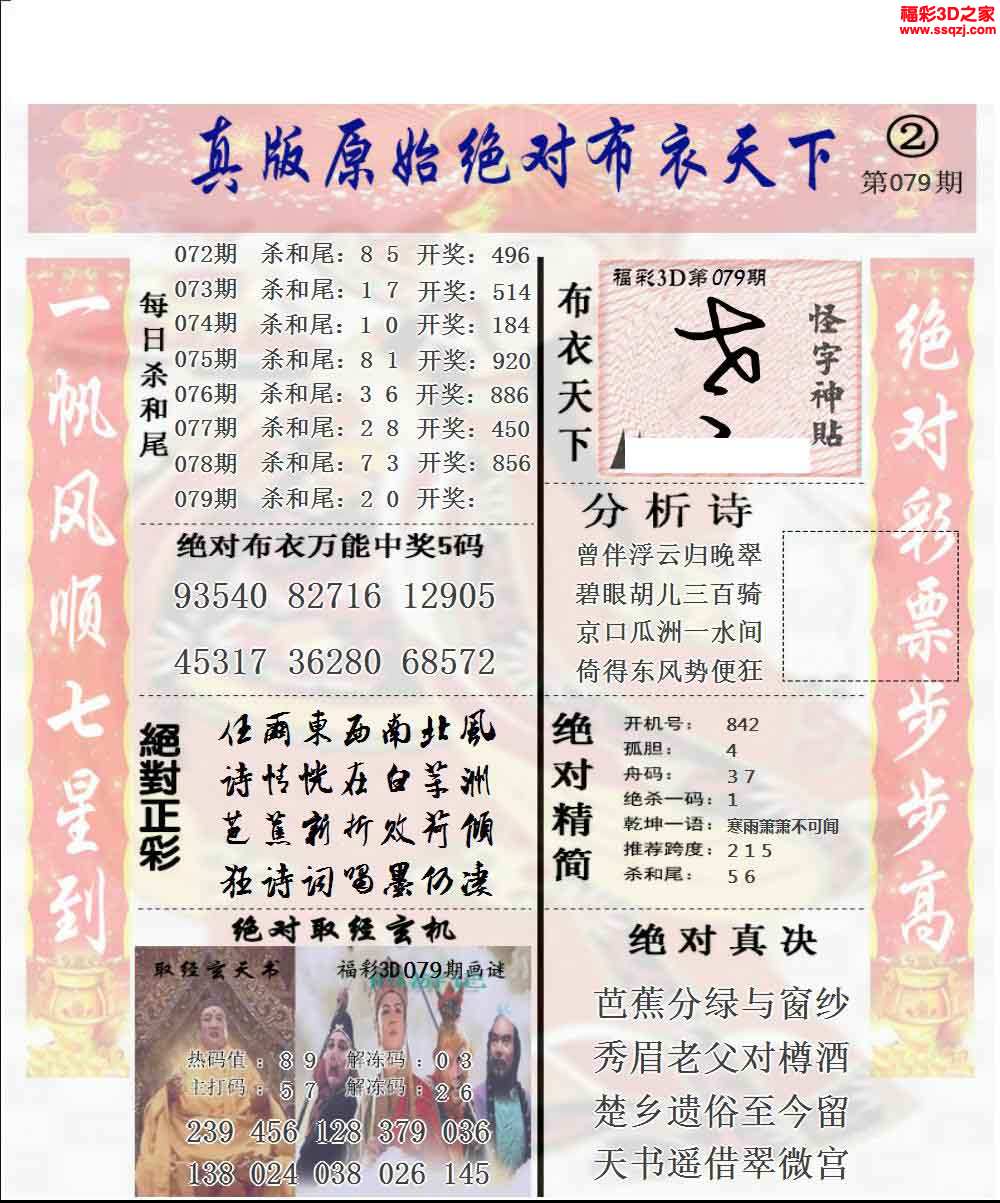 福彩3D之家
www.ssqzj.com
真版原始绝对布衣天下
②
第079期
一帆风顺七星到
每日杀和尾
072期 杀和尾：8 5 开奖：496
073期 杀和尾：1 7 开奖：514
074期 杀和尾：1 0 开奖：184
075期 杀和尾：8 1 开奖：920
076期 杀和尾：3 6 开奖：886
077期 杀和尾：2 8 开奖：450
078期 杀和尾：7 3 开奖：856
079期 杀和尾：2 0 开奖：
绝对布衣万能中奖5码
93540 82716 12905
45317 36280 68572
絕對正彩
任爾東西南北風
诗情恍在白苹洲
芭蕉新折败荷倾
狂诗词喝墨仍凄
绝对取经玄机
取经玄天书
福彩3D079期画谜
热码值：8 9 解冻码：0 3
主打码：5 7 解冻码：2 6
239 456 128 379 036
138 024 038 026 145
布衣天下
福彩3D第079期
怪字神貼
分析诗
曾伴浮云归晚翠
碧眼胡儿三百骑
京口瓜洲一水间
倚得东风势便狂
绝对精简
开机号： 842
孤胆： 4
舟码： 3 7
绝杀一码：1
乾坤一语：寒雨萧萧不可闻
推荐跨度：2 1 5
杀和尾： 5 6
绝对真决
芭蕉分绿与窗纱
秀眉老父对樽酒
楚乡遗俗至今留
天书遥借翠微宫
绝对彩票步步高